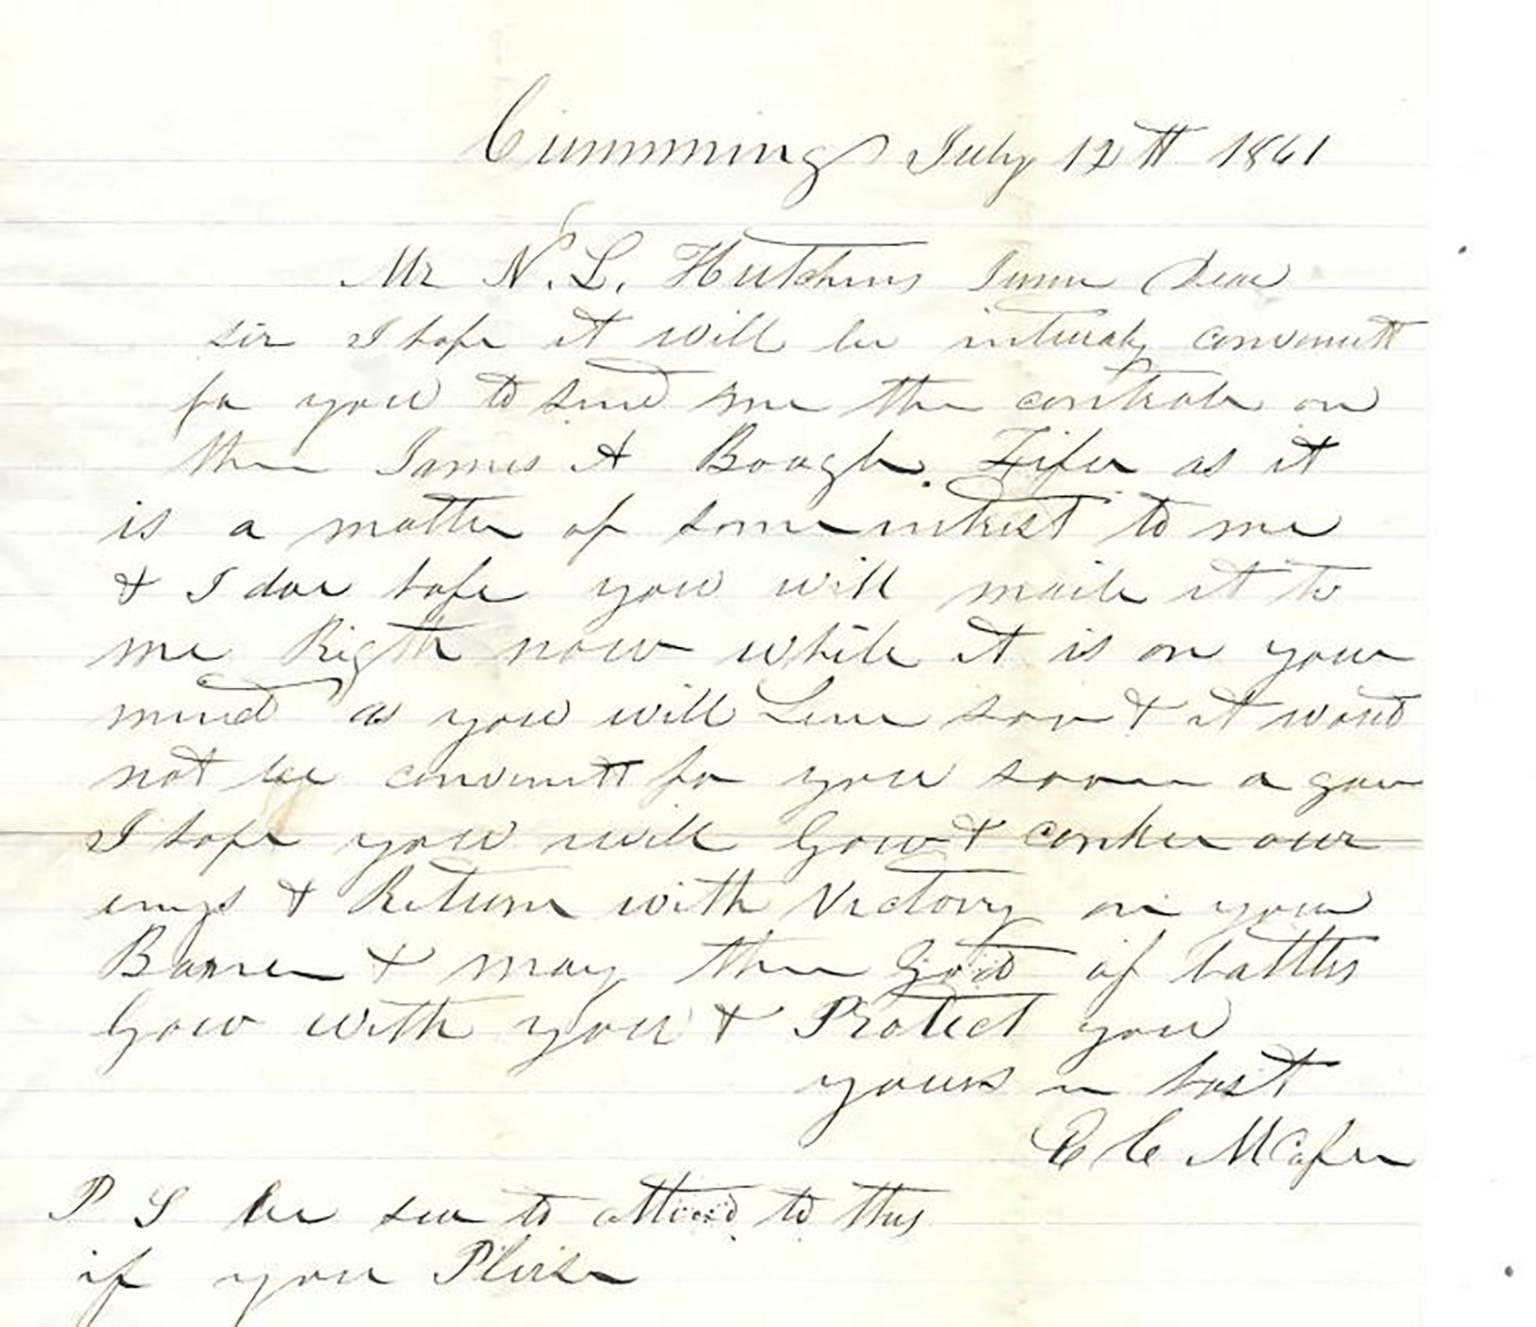 Cumming July 12th 1861
Mr N. L. Hutchins Dear
sir I hope it will be convenitt
for you to send me the on
the James A Boagh. Fifer as it
is a matter of some intrest to me
& I doe hope you will maile it to
me Rigth now while it is on your
mind as you will Leve soon & it wont
not be convenitt for you soon a gan
I hope you will Gow & conker our
enmys & Return with Victory on your
Banner & may the God of battles
Gow with you & Protect you
yours in hast
C McAfee
P S be sure to attend to this
if you Pleise